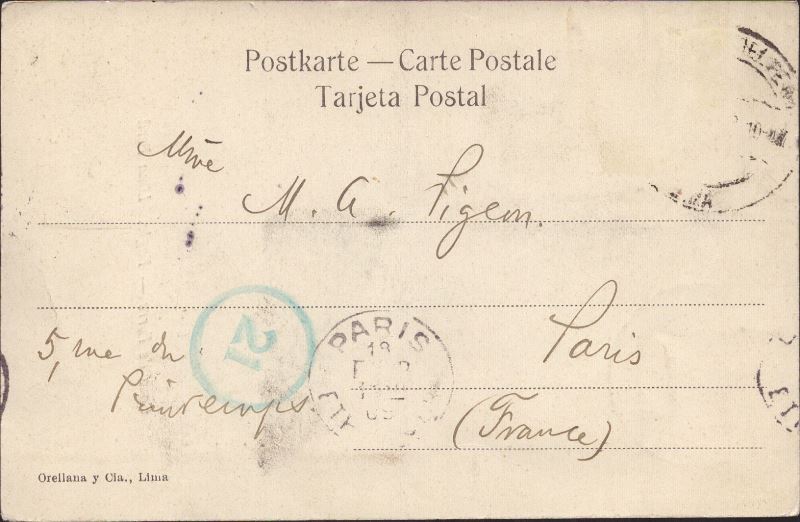 Postkarte — Carte Postale
Tarjeta Postal
10-AM
Mme
M. A. Pigeon.
21
PARIS
18
Paris
5, rue du
Printemps
(France)
Orellana y Cia., Lima